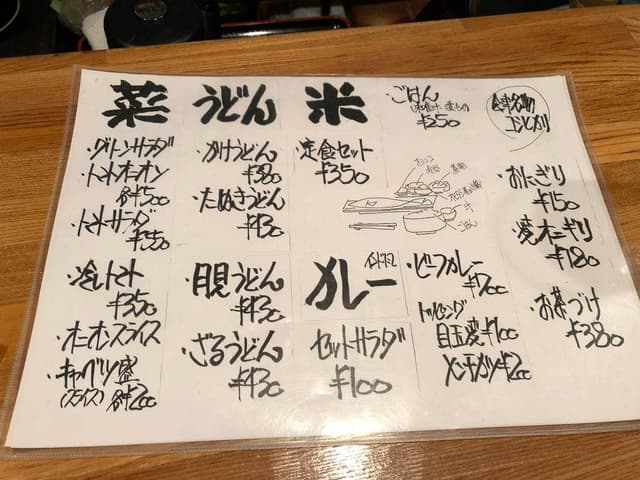 菜
・グリーンサラダ
・トマトオニオン
各¥500
・トマトサラダ
¥550
・冷しトマト
¥350
・オニオンスライス
・キャベツ盛
(スライス) 各¥200
うどん
・かけうどん
¥380
・たぬきうどん
¥430
・月見うどん
¥430
・ざるうどん
¥430
米
・定食セット
¥350
・ごはん
¥250
ごはん
会津名物
コシヒカリ
・おにぎり
¥150
・焼オニギリ
¥180
・お茶づけ
¥380
カレー
セットサラダ
¥100
・ビーフカレー
¥700
トッピング
目玉焼¥100
メンチカツ¥200